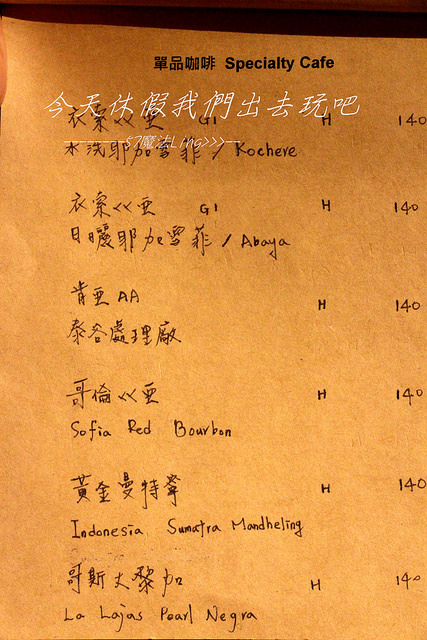 單品咖啡 Specialty Cafe
今天休假我們出去玩吧
衣索ㄍㄍ亞 G1 H 140
57魔法Ling>>>
水洗耶加雪菲 / Kochere
衣索ㄍ亞 G1 H 140
日曬耶加雪菲 / Abaya
肯亞 AA H 140
泰谷處理廠
哥倫ㄍ亞 H 140
Sofia Red Bourbon
黃金曼特寧 H 140
Indonesia Sumatra Mandheling
哥斯大黎加 H 140
La Lajas Pearl Negra